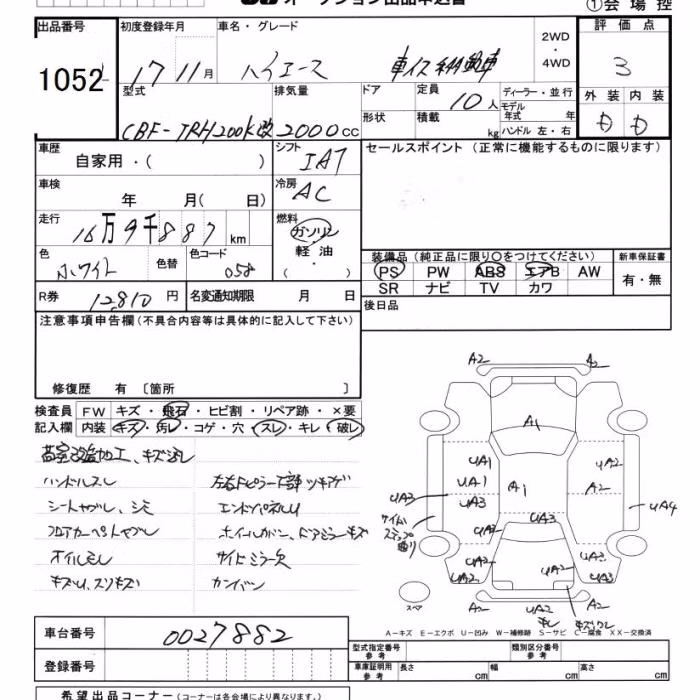 オークション出品申込書
①会場控
出品番号 初度登録年月 車名・グレード 2WD・4WD 評価点
1052 17 11月 ハイエース 車イス移動車 3
型式 排気量 ドア 定員 10人 ディーラー・並行 外装 内装
CBF-TRH200K改 2000cc 形状 積載 kg モデル年式 年 D D
ハンドル 左・右
車歴 自家用・( ) シフト IAT セールスポイント (正常に機能するものに限ります)
車検 年 月( 日) 冷房 AC
走行 16万9千887 km 燃料 ガソリン・軽油・( )
色 ホワイト 色替 色コード 058
装備品 (純正品に限り〇をつけてください) 新車保証書
PS PW ABS エアB AW 有・無
SR ナビ TV カワ
R券 12,810 円 名変通知期限 月 日 後日品
注意事項申告欄 (不具合内容等は具体的に記入して下さい)
修復歴 有 〔箇所 〕
検査員記入欄 FW キズ・飛石・ヒビ割・リペア跡・×要
内装 キズ・汚レ・コゲ・穴・スレ・キレ・破レ
ハンドルスレ
シートヤブレ、シミ
フロアカーペットヤブレ
オイルモレ
サイドミラー欠
カンバン
A2 A2
A1
UA1 UA2
UA1 A1 A2
UA3 UA3 UA3 UA4
UA3
UA2 UA2 UA3
UA2 UA2 UA3
スペア A2 UA2 A2
A-キズ E-エクボ U-凹み W-補修跡 S-サビ C-腐食 XX-交換済
車台番号 0027882 型式指定番号 参考 類別区分番号 参考
登録番号 車庫証明用 参考 長さ cm 幅 cm 高さ cm
希望出品コーナー (コーナーは各会場により異なります)